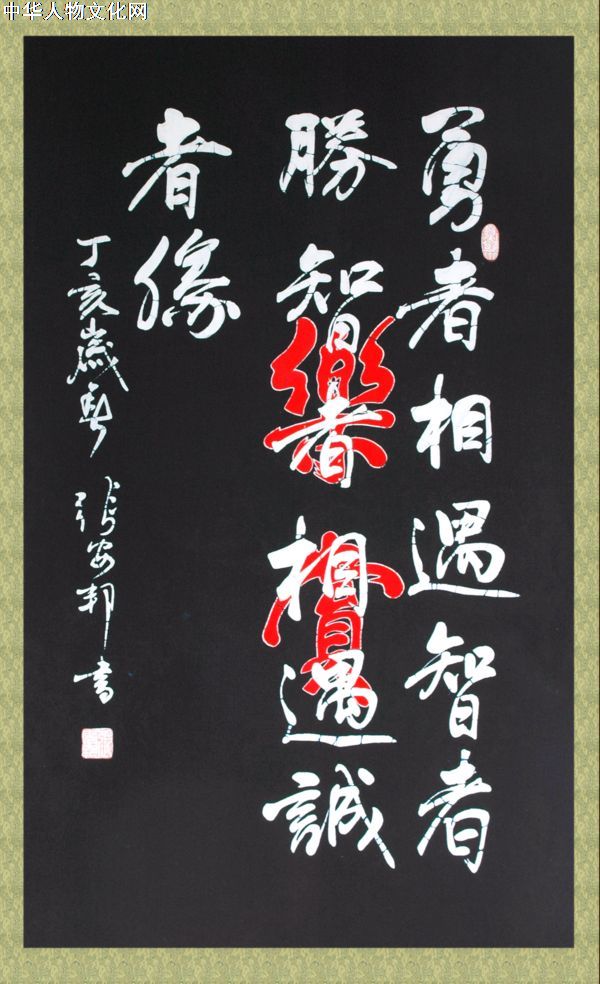 中华人物文化网
勇者相遇智者
勝智者相遇誠
者勝
丁亥歲春 張安邦書
樂